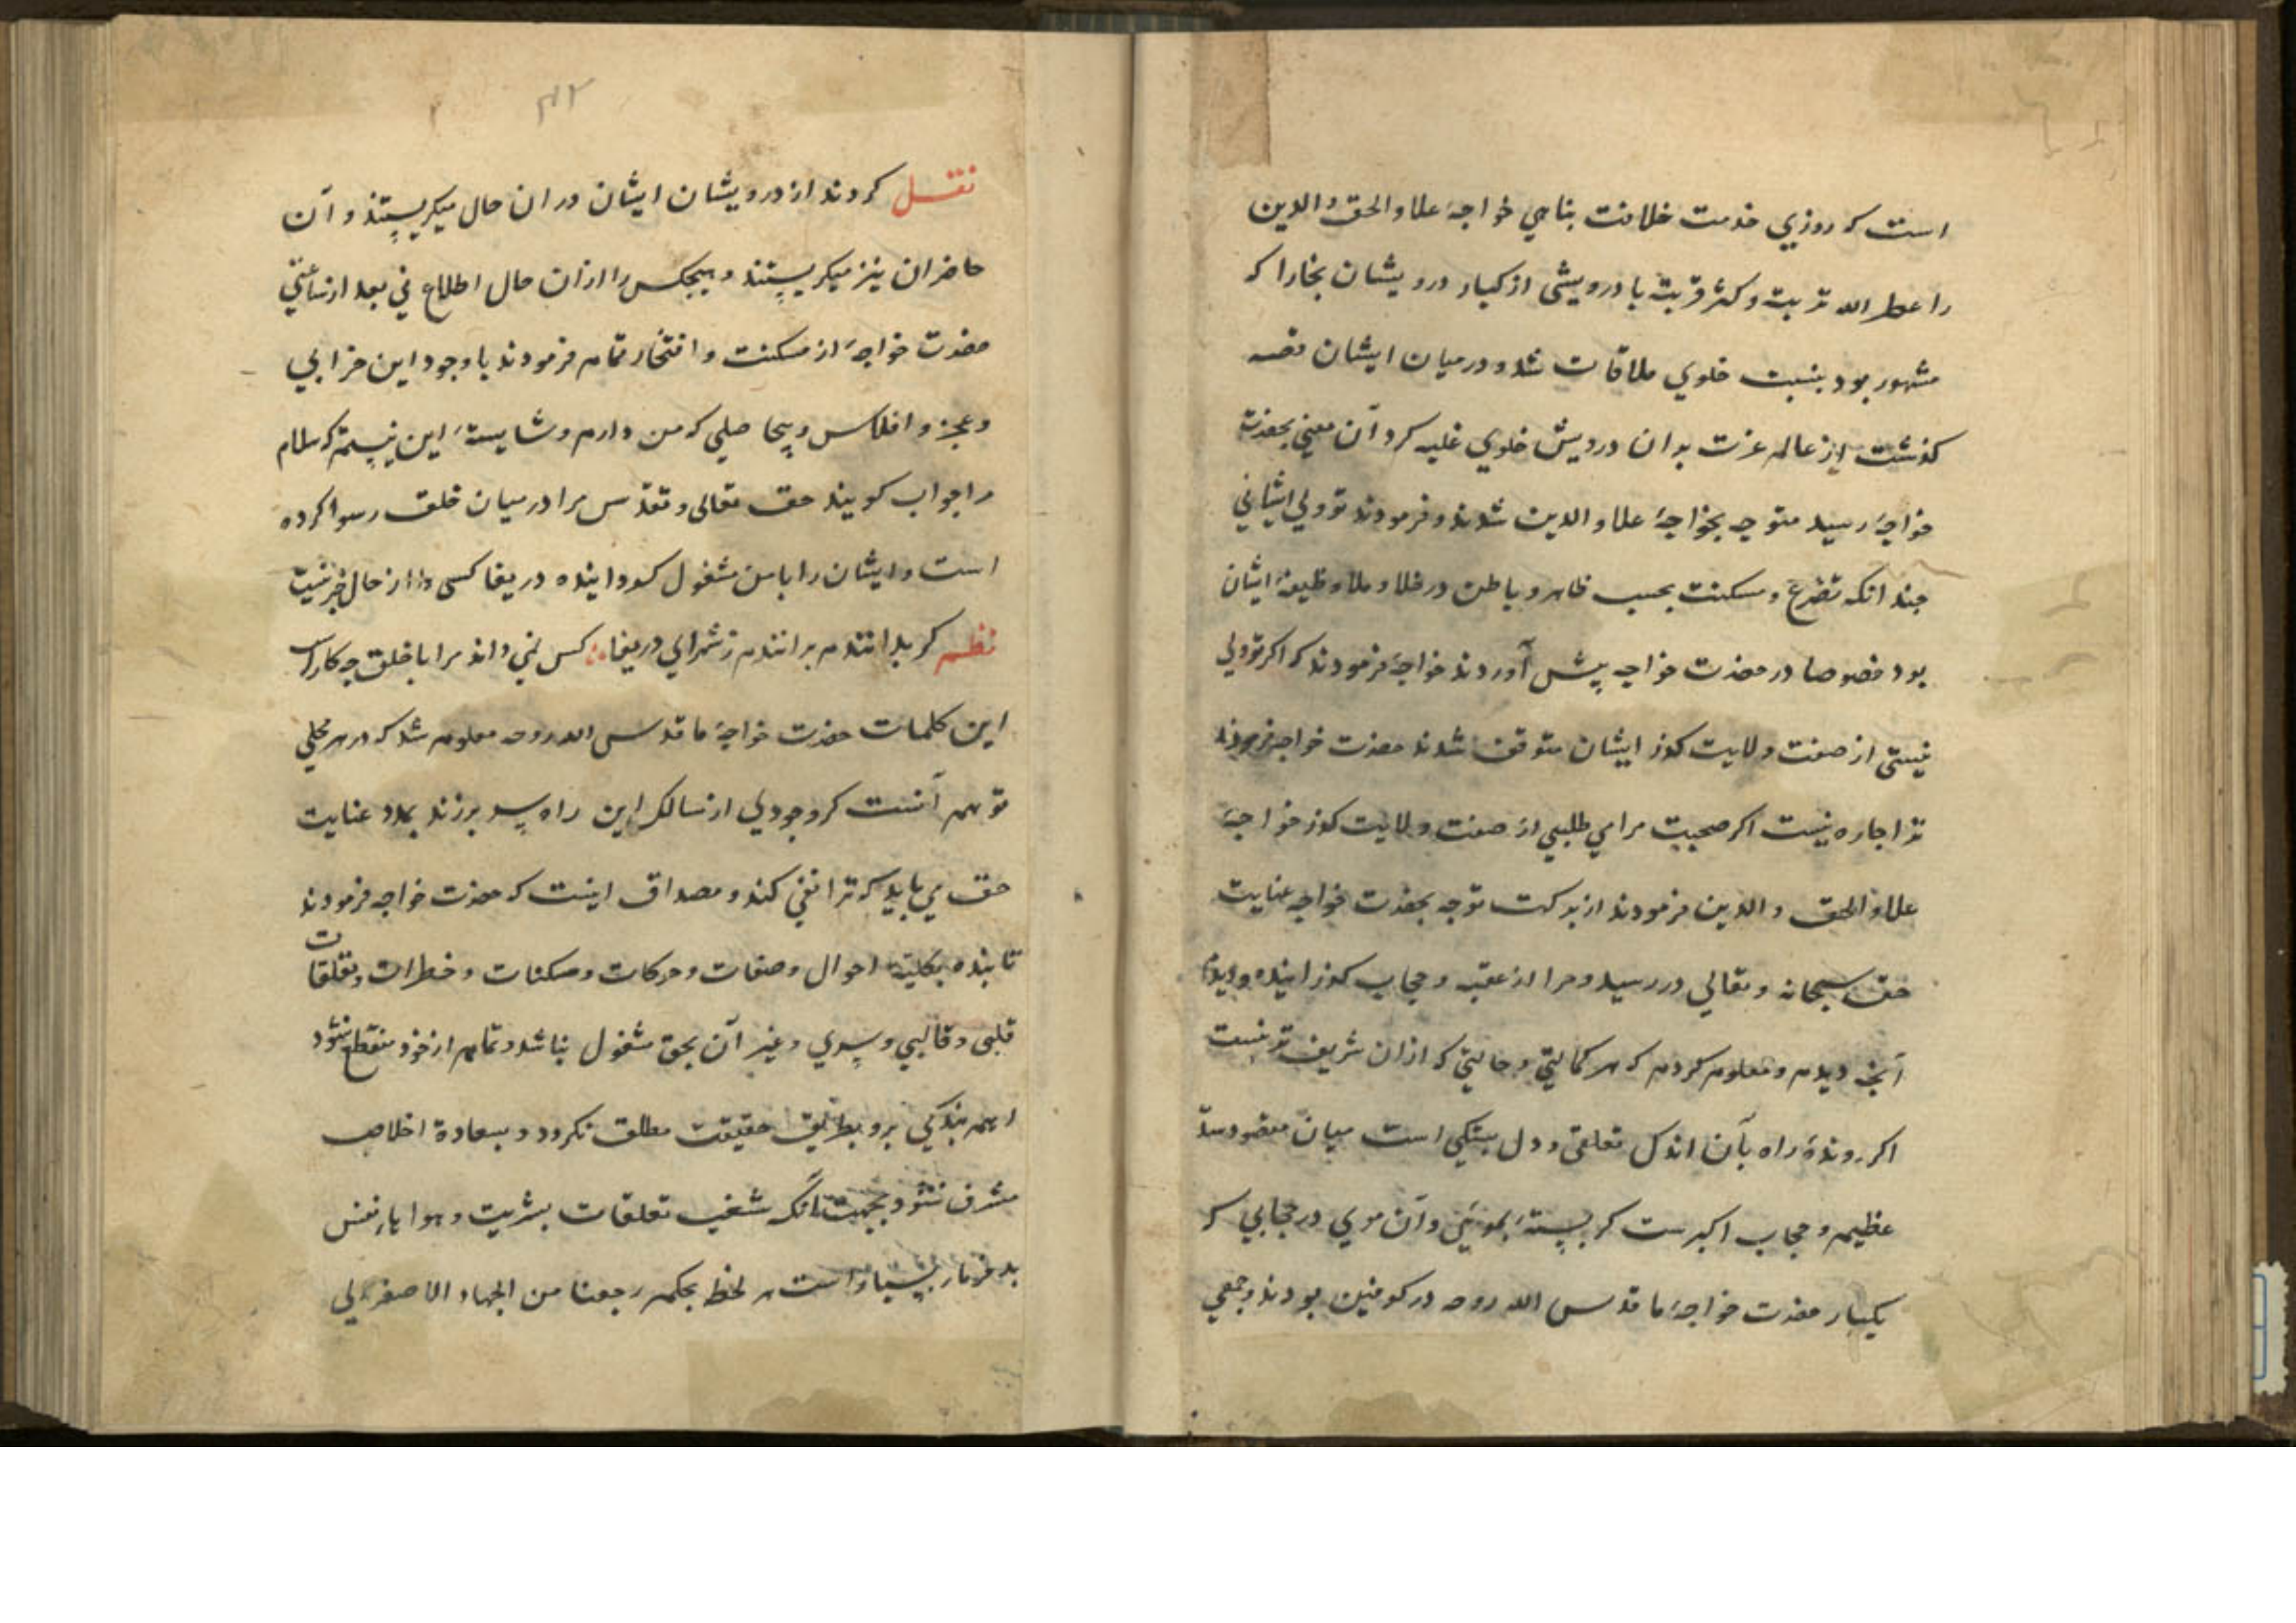 است که روزي خدمت خلافت پناهي خواجه علاو الحق و الدين
را عطر الله تربت وکثر قربته با درويشى از کبار درويشان بخارا که
مشهور بود بنسبت خلوي ملاقات شد و درميان ايشان قصه
کذشت از عالم عزت بدان درويش خلوي غلبه کرد آن معني بحضرت
خواجه رسيد متوجه بخواجهٔ علاو الدين شدند و فرمودند تو ولي ايشاني
جند انکه تضرع و مسکنت بحسب ظاهر و باطن در خلا و ملا وظيفهٔ ايشان
بود خصوصا در حضرت خواجه پيش آوردند خواجه فرمودند که اکر تو ولي
نيستى از صفت ولايت کوز ايشان متوقف شدند حضرت خواجه فرمودند
ترا جاره نيست اکر صحبت مرا مي طلبي از صفت ولايت کوز خواجهٔ
علاو الحق و الدين فرمودند از برکت توجه بحضرت خواجه عنايت
حق سبحانه و تعالي در رسيد و مرا از عقبه و حجاب کوزرانيده و ديدم
آنجه ديدم و معلوم کردم که هر کمالتي و حالتي که ازان شريف تر نيست
اکر روندهٔ راه بآن اندک تعلقى و دل بستکي است ميان مقصود سدّ
عظيم و حجاب اکبر ست کر بستهٔ بمويئ وآن موي در حجابي که
يکبار حضرت خواجهٔ ما قدس الله روحه در کوفين بودند و جمعي
نقل کردند از درويشان ايشان دران حال ميکريستند و آن
حاضران نيز ميکريستند و هيجکس را ازان حال اطلاع ني بعد از ساعتي
حضرت خواجهٔ از مسکنت و افتخار تمام فرمودند با وجود اين خرابي
و عجز و افلاس و بيحاصلي که من دارم و شايستهٔ اين نيستم که سلام
مرا جواب کويند حق تعالى و تقدس مرا درميان خلق رسوا کرده
است و ايشان را با من مشغول کردانيده دريغا کسى را از حال خبر نيست
نظم کر بدانندم برانندم ز شهر اي دريغا کس نمي داند مرا با خلق چه کارست
اين کلمات حضرت خواجهٔ ما قدس الله روحه معلوم شد که در هر محلي
توهم آنست که وجودي از سالک اين راه سر برزند بمدد عنايت
حق مي بايد که ترا نفي کند و مصداق اينست که حضرت خواجه فرمودند
تا بنده بکليت احوال وصفات و حرکات و سکنات و خطرات و تعلقات
قلبى و قالبي و سري و غير آن بحق مشغول نباشد و تمام از خود منقطع نشود
اسم بندکي برو بطريق حقيقت مطلق نکردد و بسعادة اخلاص
مشرف نشود بجهت آنکه شغب تعلقات بشريت و هوا يار نفس
بد فرمار بسيار است هر لحظ بحکم رجعنا من الجهاد الاصغر الى